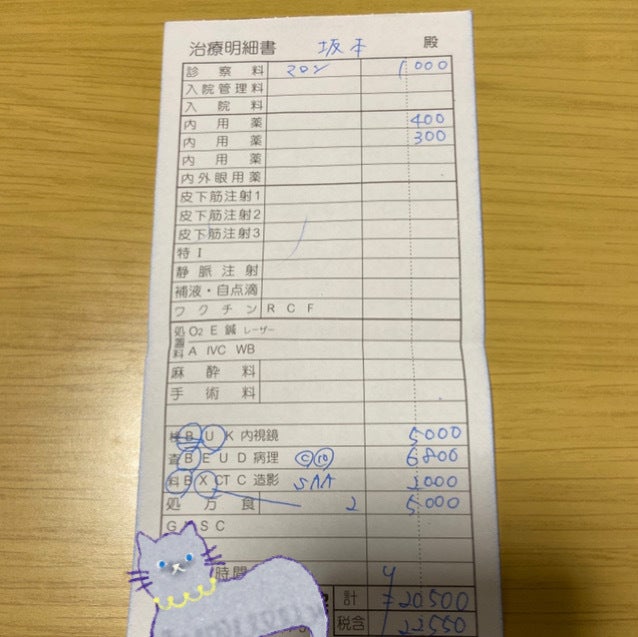 治療明細書 坂本 殿
診察料 マロン 1000
入院管理料
入院料
内用薬 400
内用薬 300
内用薬
内外眼用薬
皮下筋注射1
皮下筋注射2
皮下筋注射3
特I
静脈注射
補液・自点滴
ワクチン RCF
処置料 O2 E 鍼 レーザー
A IVC WB
麻酔料
手術料
検 B U K 内視鏡 5000
査 B E U D 病理 C 10 6800
料 B X CT C 造影 SAA 2000
処方食 2 5000
G SC
時間
計 ¥20,500
税含 22550